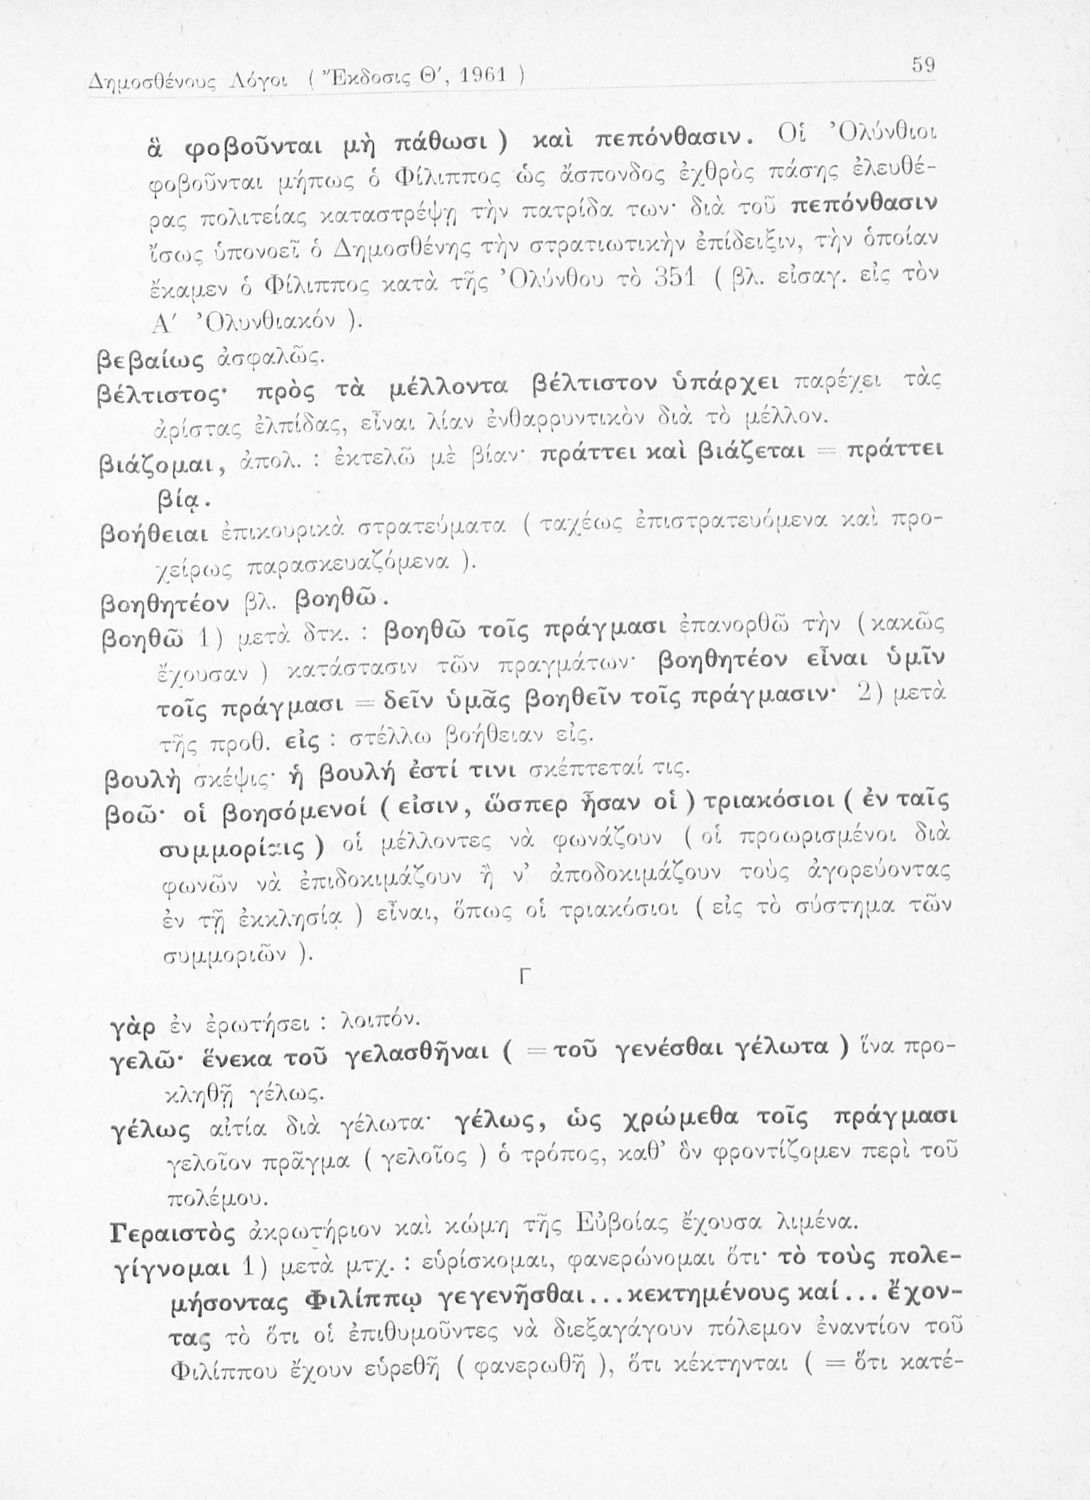 Δημοσθένους Λόγοι ( Ἔκδοσις Θ΄, 1961 ) 59
ἃ φοβοῦνται μὴ πάθωσι ) καὶ πεπόνθασιν. Οἱ Ὀλύνθιοι
φοβοῦνται μήπως ὁ Φίλιππος ὡς ἄσπονδος ἐχθρὸς πάσης ἐλευθέ-
ρας πολιτείας καταστρέψῃ τὴν πατρίδα των· διὰ τοῦ πεπόνθασιν
ἴσως ὑπονοεῖ ὁ Δημοσθένης τὴν στρατιωτικὴν ἐπίδειξιν, τὴν ὁποίαν
ἔκαμεν ὁ Φίλιππος κατὰ τῆς Ὀλύνθου τὸ 351 ( βλ. εἰσαγ. εἰς τὸν
Α΄ Ὀλυνθιακόν ).
βεβαίως ἀσφαλῶς.
βέλτιστος· πρὸς τὰ μέλλοντα βέλτιστον ὑπάρχει παρέχει τὰς
ἀρίστας ἐλπίδας, εἶναι λίαν ἐνθαρρυντικὸν διὰ τὸ μέλλον.
βιάζομαι, ἀπολ. : ἐκτελῶ μὲ βίαν· πράττει καὶ βιάζεται = πράττει
βίᾳ.
βοήθειαι ἐπικουρικὰ στρατεύματα ( ταχέως ἐπιστρατευόμενα καὶ προ-
χείρως παρασκευαζόμενα ).
βοηθητέον βλ. βοηθῶ.
βοηθῶ 1) μετὰ δτκ. : βοηθῶ τοῖς πράγμασι ἐπανορθῶ τὴν ( κακῶς
ἔχουσαν ) κατάστασιν τῶν πραγμάτων· βοηθητέον εἶναι ὑμῖν
τοῖς πράγμασι = δεῖν ὑμᾶς βοηθεῖν τοῖς πράγμασιν· 2) μετὰ
τῆς προθ. εἰς : στέλλω βοήθειαν εἰς.
βουλὴ σκέψις· ἡ βουλή ἐστί τινι σκέπτεταί τις.
βοῶ· οἱ βοησόμενοί ( εἰσιν, ὥσπερ ἦσαν οἱ ) τριακόσιοι ( ἐν ταῖς
συμμορίαις ) οἱ μέλλοντες νὰ φωνάζουν ( οἱ προωρισμένοι διὰ
φωνῶν νὰ ἐπιδοκιμάζουν ἢ ν᾽ ἀποδοκιμάζουν τοὺς ἀγορεύοντας
ἐν τῇ ἐκκλησίᾳ ) εἶναι, ὅπως οἱ τριακόσιοι ( εἰς τὸ σύστημα τῶν
συμμοριῶν ).
Γ
γὰρ ἐν ἐρωτήσει : λοιπόν.
γελῶ· ἕνεκα τοῦ γελασθῆναι ( = τοῦ γενέσθαι γέλωτα ) ἵνα προ-
κληθῇ γέλως.
γέλως αἰτία διὰ γέλωτα· γέλως, ὡς χρώμεθα τοῖς πράγμασι
γελοῖον πρᾶγμα ( γελοῖος ) ὁ τρόπος, καθ᾽ ὃν φροντίζομεν περὶ τοῦ
πολέμου.
Γεραιστὸς ἀκρωτήριον καὶ κώμη τῆς Εὐβοίας ἔχουσα λιμένα.
γίγνομαι 1) μετὰ μτχ. : εὑρίσκομαι, φανερώνομαι ὅτι· τὸ τοὺς πολε-
μήσοντας Φιλίππῳ γεγενῆσθαι... κεκτημένους καί... ἔχον-
τας τὸ ὅτι οἱ ἐπιθυμοῦντες νὰ διεξαγάγουν πόλεμον ἐναντίον τοῦ
Φιλίππου ἔχουν εὑρεθῆ ( φανερωθῆ ), ὅτι κέκτηνται ( = ὅτι κατέ-